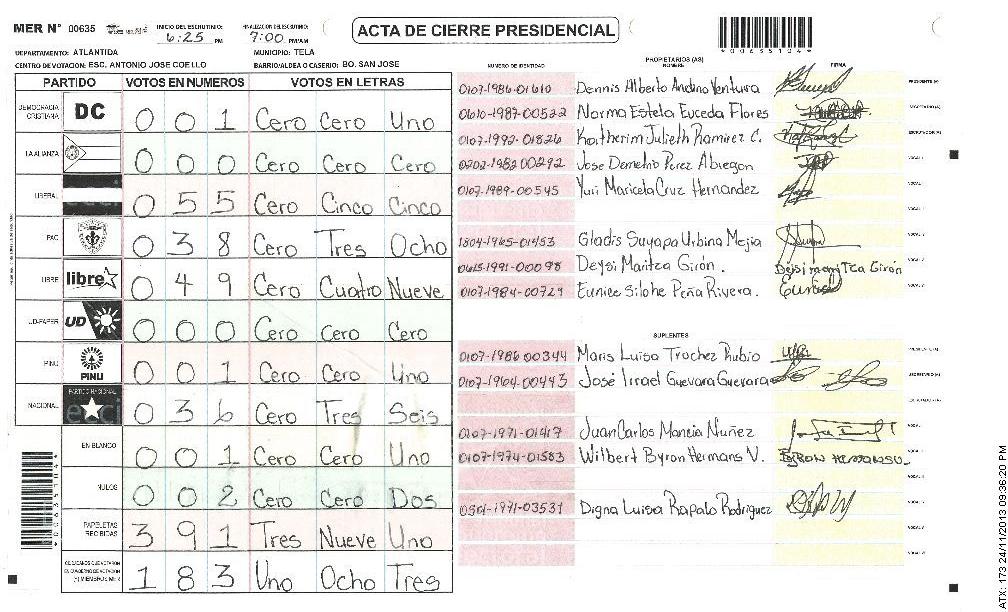 MER N° 00635
INICIO DEL ESCRUTINIO: 6:25 PM
FINALIZACIÓN DEL ESCRUTINIO: 7:00 PM/AM
ACTA DE CIERRE PRESIDENCIAL
*00635104*
DEPARTAMENTO: ATLANTIDA
MUNICIPIO: TELA
CENTRO DE VOTACION: ESC. ANTONIO JOSE COELLO
BARRIO/ALDEA O CASERIO: BO. SAN JOSE
PARTIDO VOTOS EN NUMEROS VOTOS EN LETRAS
DEMOCRACIA CRISTIANA DC 0 0 1 Cero Cero Uno
LA ALIANZA 0 0 0 Cero Cero Cero
LIBERAL 0 5 5 Cero Cinco Cinco
PAC 0 3 8 Cero Tres Ocho
LIBRE libre 0 4 9 Cero Cuatro Nueve
UD-FAPER UD 0 0 0 Cero Cero Cero
PINU PINU 0 0 1 Cero Cero Uno
NACIONAL PARTIDO NACIONAL 0 3 6 Cero Tres Seis
EN BLANCO 0 0 1 Cero Cero Uno
NULOS 0 0 2 Cero Cero Dos
PAPELETAS RECIBIDAS 3 9 1 Tres Nueve Uno
CIUDADANOS QUE VOTARON EN CUADERNO DE VOTACION (+) MIEMBROS MER 1 8 3 Uno Ocho Tres
PROPIETARIOS (AS)
NUMERO DE IDENTIDAD NOMBRE FIRMA
0107-1986-01610 Dennis Alberto Andino Ventura PRESIDENTE (A)
0610-1987-00522 Norma Estela Euceda Flores SECRETARIO (A)
0107-1992-01826 Katherim Julieth Ramirez C. ESCRUTADOR (A)
0202-1982-00292 Jose Demetrio Perez Abregon VOCAL I
0107-1989-00545 Yuri Maricela Cruz Hernandez VOCAL
1804-1965-01453 Gladis Suyapa Urbina Mejia VOCAL
0615-1991-00098 Deysi Maritza Girón. Deisi maritza Girón VOCAL
0107-1984-00729 Eunice Silohe Peña Rivera. VOCAL
SUPLENTES
0107-1986 00344 Maris Luisa Trochez Rubio PRESIDENTE (A)
0107-1964-00443 José Israel Guevara Guevara SECRETARIO (A)
ESCRUTADOR (A)
0107-1971-01417 Juan Carlos Mancia Nuñez VOCAL
0107-1974-01583 Wilbert Byron Hermans V. VOCAL
0501-1971-03531 Digna Luisa Rapalo Rodriguez VOCAL
ATX: 173 24/11/2013 09:36:20 PM